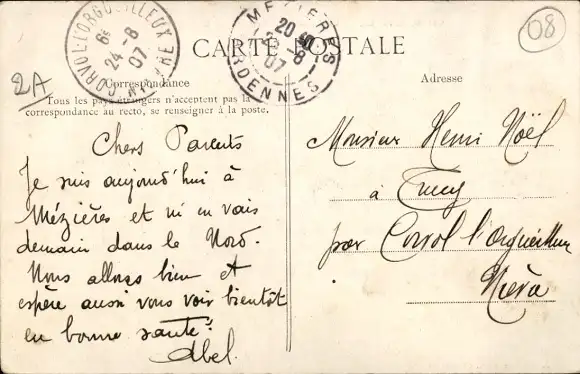 CORVOL-L'ORGUEILLEUX
6E
24-8
07
NIÈVRE
MEZIERES
20
-8
07
ARDENNES
08
CARTE POSTALE
2A
Correspondance
Tous les pays étrangers n'acceptent pas la
correspondance au recto, se renseigner à la poste.
Chers Parents
Je suis aujourd'hui à
Mézières et m'en vais
demain dans le Nord.
Nous allons bien et
espère aussi vous voir bientôt
en bonne santé.
Abel.
Adresse
Monsieur Henri Noël
à
par Corvol l'Orgueilleux
Nièvre